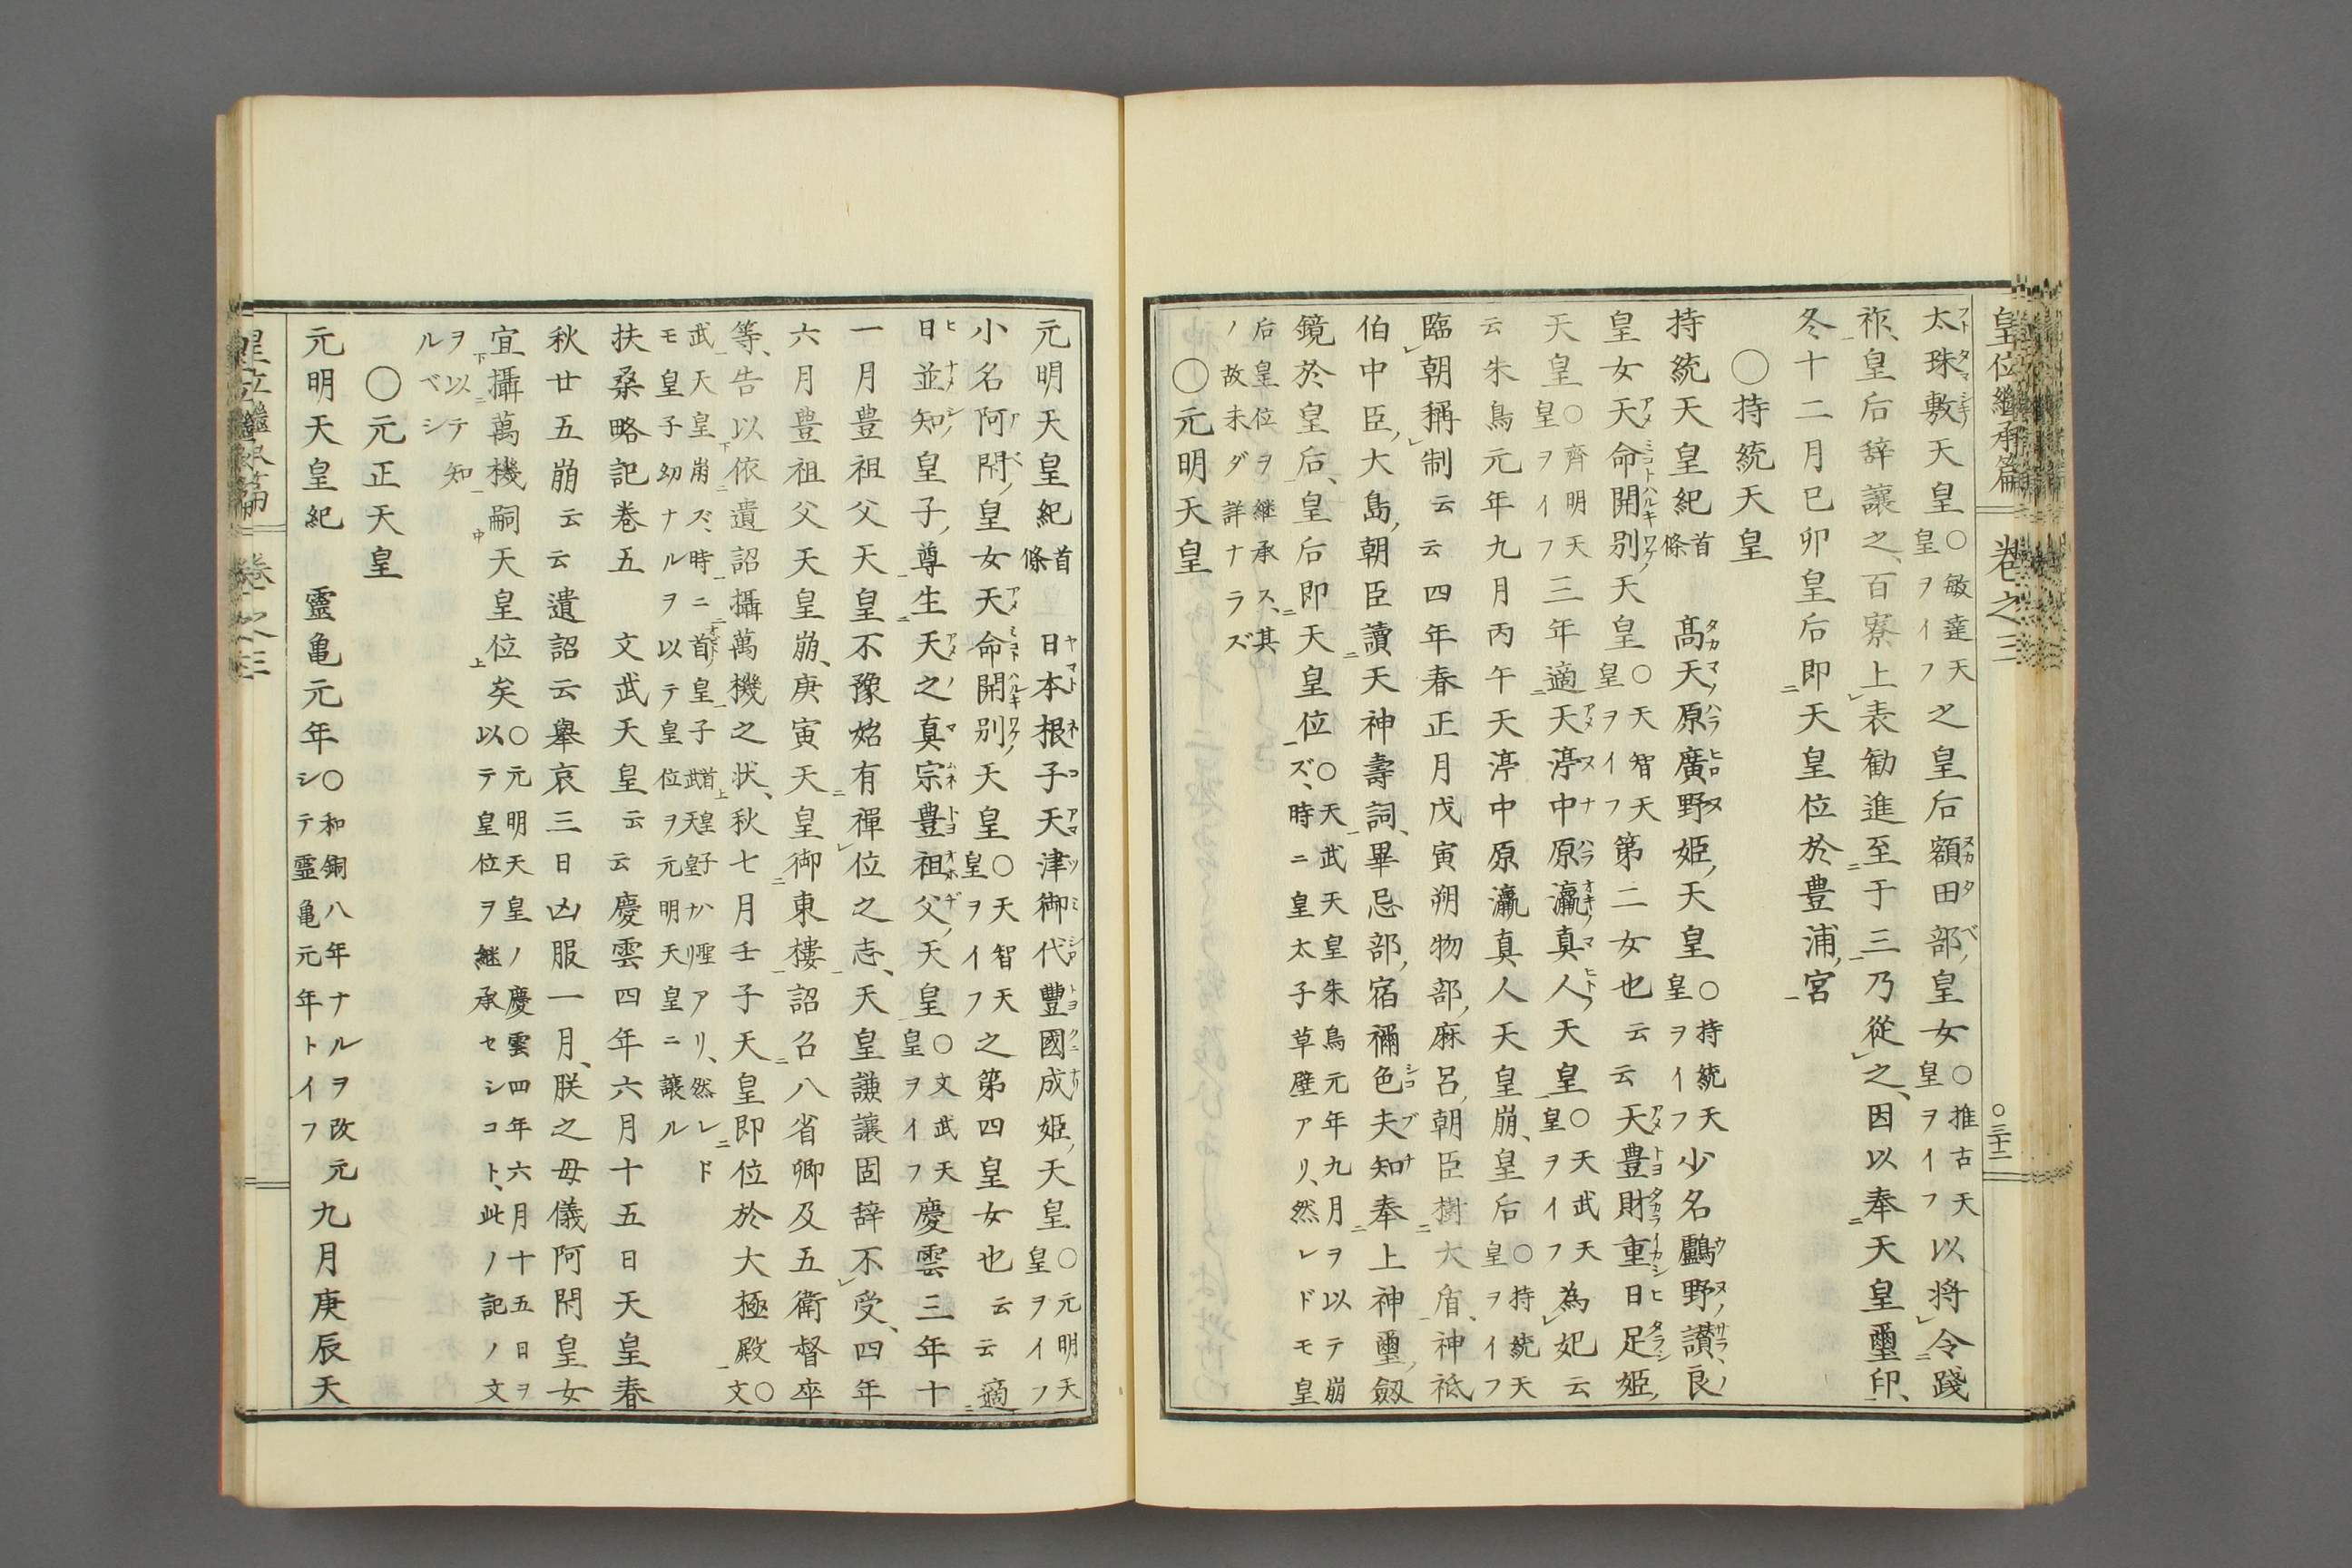 皇位繼承篇　卷之三　〇三十二
太珠敷天皇〇敏達天皇ヲイフ之皇后額田部皇女〇推古天皇ヲイフ以將令踐
祚、皇后辞讓之、百寮上表勸進至于三乃從之、因以奉天皇璽印、
冬十二月已卯皇后即天皇位於豊浦宮
〇持統天皇
持統天皇紀首條　髙天原廣野姫天皇〇持統天皇ヲイフ少名鸕野讃良
皇女天命開別天皇〇天智天皇ヲイフ第二女也云云天豊財重日足姫
天皇〇齊明天皇ヲイフ三年適天渟中原瀛真人天皇〇天武天皇ヲイフ為妃云
云朱鳥元年九月丙午天渟中原瀛真人天皇崩、皇后〇持統天皇ヲイフ
臨朝稱制云云四年春正月戊寅朔物部麻呂朝臣樹大盾、神祇
伯中臣大島朝臣讀天神壽詞、畢忌部宿禰色夫知奉上神璽劔
鏡於皇后、皇后即天皇位〇天武天皇朱鳥元年九月ヲ以テ崩ズ、時ニ皇太子草壁アリ、然レドモ皇
后皇位ヲ継承ス、其ノ故未ダ詳ナラズ
〇元明天皇
元明天皇紀首條　日本根子天津御代豐國成姫天皇〇元明天皇ヲイフ
小名阿閇皇女天命開別天皇〇天智天皇ヲイフ之第四皇女也云云適
日並知皇子尊生天之真宗豊祖父天皇〇文武天皇ヲイフ慶雲三年十
一月豊祖父天皇不豫始有禪位之志、天皇謙讓固辞不受、四年
六月豊祖父天皇崩、庚寅天皇御東樓詔召八省卿及五衛督卒
等、告以依遺詔攝萬機之状、秋七月壬子天皇即位於大極殿〇文
武天皇崩ズ、時ニ首皇子首皇子ハ聖武天皇ナリアリ、然レドモ皇子幼ナルヲ以テ皇位ヲ元明天皇ニ讓ル
扶桑略記巻五　文武天皇云云慶雲四年六月十五日天皇春
秋廿五崩云云遺詔云舉哀三日凶服一月、朕之母儀阿閇皇女
宜攝萬機嗣天皇位矣〇元明天皇ノ慶雲四年六月十五日ヲ以テ皇位ヲ継承セシコト、此ノ記ノ文
ヲ以テ知ルベシ
〇元正天皇
元明天皇紀　靈亀元年〇和銅八年ナルヲ改元シテ靈亀元年トイフ九月庚辰天
皇位繼承篇　卷之三